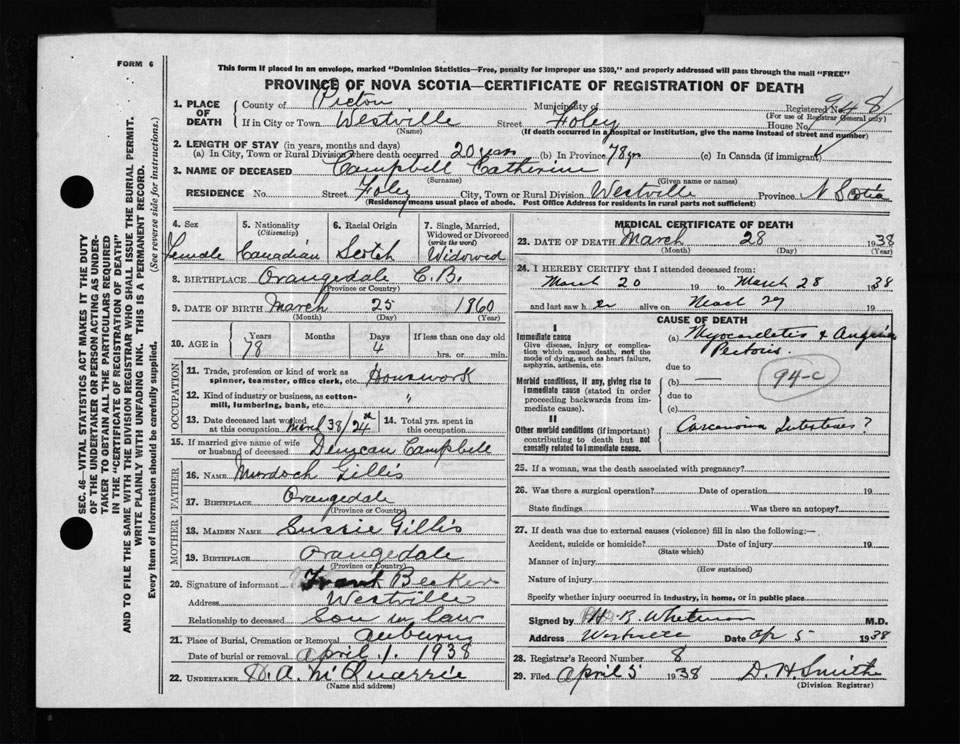 FORM 6
This form if placed in an envelope, marked "Dominion Statistics—Free, penalty for improper use $300," and properly addressed will pass through the mail "FREE"
PROVINCE OF NOVA SCOTIA—CERTIFICATE OF REGISTRATION OF DEATH
SEC. 46—VITAL STATISTICS ACT MAKES IT THE DUTY
OF THE UNDERTAKER OR PERSON ACTING AS UNDER-
TAKER TO OBTAIN ALL THE PARTICULARS REQUIRED
IN THE "CERTIFICATE OF REGISTRATION OF DEATH"
AND TO FILE THE SAME WITH THE DIVISION REGISTRAR WHO SHALL ISSUE THE BURIAL PERMIT.
WRITE PLAINLY WITH UNFADING INK. THIS IS A PERMANENT RECORD.
Every item of information should be carefully supplied. (See reverse side for Instructions.)
1. PLACE OF DEATH County of Pictou Municipality of Registered No. 948
(For use of Registrar General only)
If in City or Town Westville Street Foley House No.
(Name) (If death occurred in a hospital or institution, give the name instead of street and number)
2. LENGTH OF STAY (in years, months and days)
(a) In City, Town or Rural Division where death occurred 20 yrs (b) In Province 78 yrs (c) In Canada (if immigrant)
3. NAME OF DECEASED Campbell Catherine
(Surname) (Given name or names)
RESIDENCE No. Street Foley City, Town or Rural Division Westville Province N Scotia
(Residence means usual place of abode. Post Office Address for residents in rural parts not sufficient)
4. Sex 5. Nationality (Citizenship) 6. Racial Origin 7. Single, Married, Widowed or Divorced (write the word)
Female Canadian Scotch Widowed
8. BIRTHPLACE Orangedale C.B.
(Province or Country)
9. DATE OF BIRTH March 25 1860
(Month) (Day) (Year)
10. AGE in Years Months Days If less than one day old
78 4 hrs. or min.
OCCUPATION
11. Trade, profession or kind of work as spinner, teamster, office clerk, etc. Housework
12. Kind of industry or business, as cotton-mill, lumbering, bank, etc. "
13. Date deceased last worked at this occupation March 38/24 14. Total yrs. spent in this occupation
15. If married give name of wife or husband of deceased Duncan Campbell
FATHER
16. NAME Murdoch Gillis
17. BIRTHPLACE Orangedale
(Province or Country)
MOTHER
18. MAIDEN NAME Sussie Gillis
19. BIRTHPLACE Orangedale
(Province or Country)
20. Signature of informant Frank
Address Westville
Relationship to deceased Son in law
21. Place of Burial, Cremation or Removal Auburn
Date of burial or removal April 1. 1938
22. UNDERTAKER D. A. McQuarrie
(Name and address)
MEDICAL CERTIFICATE OF DEATH
23. DATE OF DEATH March 28 1938
(Month) (Day) (Year)
24. I HEREBY CERTIFY that I attended deceased from:
March 20 19 to March 28 1938
and last saw her alive on March 27 19
CAUSE OF DEATH
I
Immediate cause
Give disease, injury or complication which caused death, not the mode of dying, such as heart failure, asphyxia, asthenia, etc.
(a) Myocarditis & Angina
Pectoris.
due to
Morbid conditions, if any, giving rise to immediate cause (stated in order proceeding backwards from immediate cause).
(b) —
94-c
due to
(c)
II
Other morbid conditions (if important) contributing to death but not causally related to immediate cause.
Carcinoma Intestines?
25. If a woman, was the death associated with pregnancy?
26. Was there a surgical operation? Date of operation 19
State findings Was there an autopsy?
27. If death was due to external causes (violence) fill in also the following:—
Accident, suicide or homicide? Date of injury 19
(State which)
Manner of injury
(How sustained)
Nature of injury
Specify whether injury occurred in industry, in home, or in public place
Signed by H. B. Whitman M.D.
Address Westville Date Ap 5 1938
28. Registrar's Record Number 8
29. Filed April 5 1938 D. H. Smith
(Division Registrar)